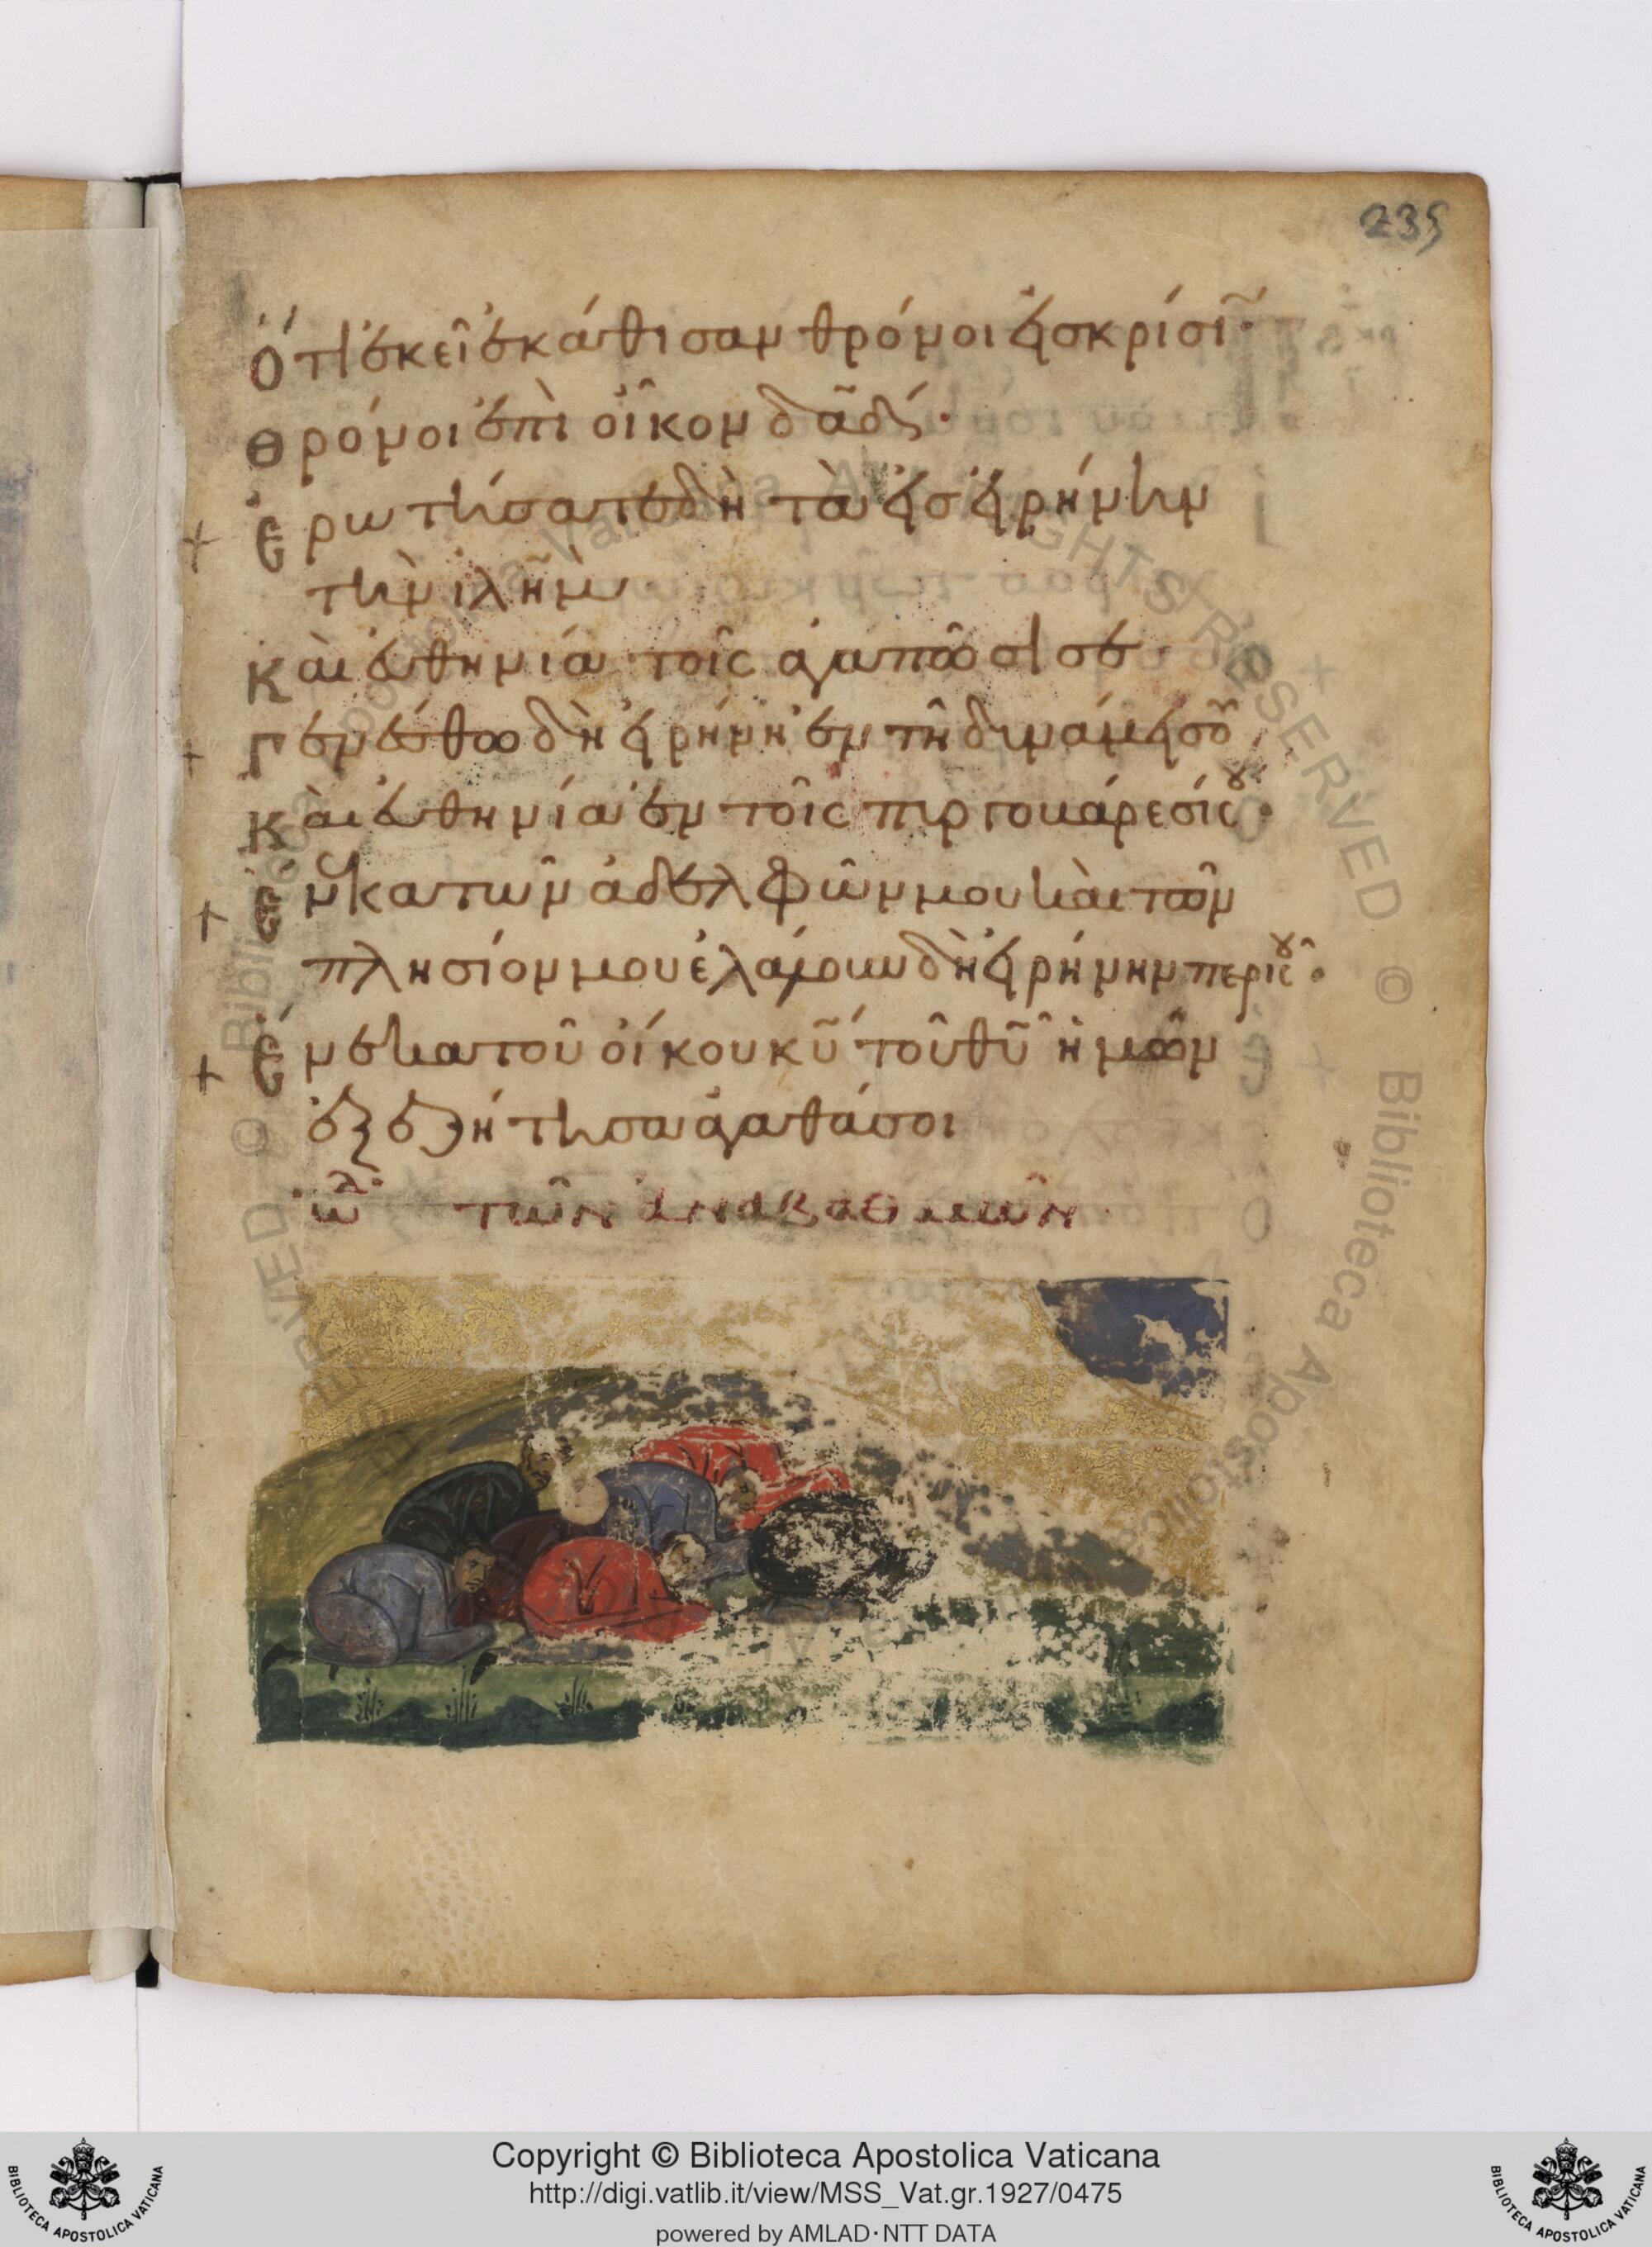 235
Ὅτι ἐκεῖ ἐκάθισαν θρόνοι εἰσ κρίσι
Θρόνοι ἐπὶ οἶκον δᾱδ
Ἐρωτήσατε δὴ τὰ εἰσ εἰρήνην
τὴν ιλῆμ
Καὶ εὐθηνία τοῖς ἀγαπῶσί σε
Γενέσθω δὴ εἰρήνη ἐν τῆ δυνάμει σου
Καὶ εὐθηνία ἐν τοῖς πυργοβάρεσί σου
Ἕνεκα τῶν ἀδελφῶν μου καὶ τῶν
πλησίον μου ἐλάλουν δὴ εἰρήνην περί σου
Ἕνεκα τοῦ οἴκου κῡ τοῦ θῡ ἡμῶν
ἐξεζήτησα ἀγαθά σοι
ὠδ τῶν ἀναβαθμῶν
Copyright © Biblioteca Apostolica Vaticana
http://digi.vatlib.it/view/MSS_Vat.gr.1927/0475
powered by AMLAD·NTT DATA
BIBLIOTECA APOSTOLICA VATICANA
BIBLIOTECA APOSTOLICA VATICANA